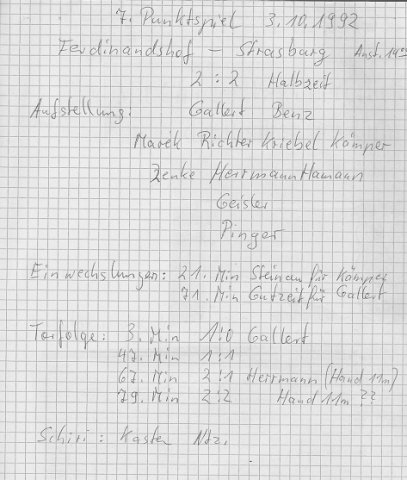 7. Punktspiel 3.10.1992
Ferdinandshof – Strasburg Anst. 14⁰⁰
2 : 2 Halbzeit
Aufstellung: Gallert Benz
Marek Richter Kriebel Kämper
Zenke Herrmann Hamann
Geisler
Pinger
Einwechslungen: 21. Min Steinau für Kämper
71. Min Gutzeit für Gallert
Torfolge: 3. Min 1:0 Gallert
47. Min 1:1
67. Min 2:1 Herrmann (Hand 11m)
79. Min 2:2 Hand 11m ??
Schiri: Kaster Ntz.